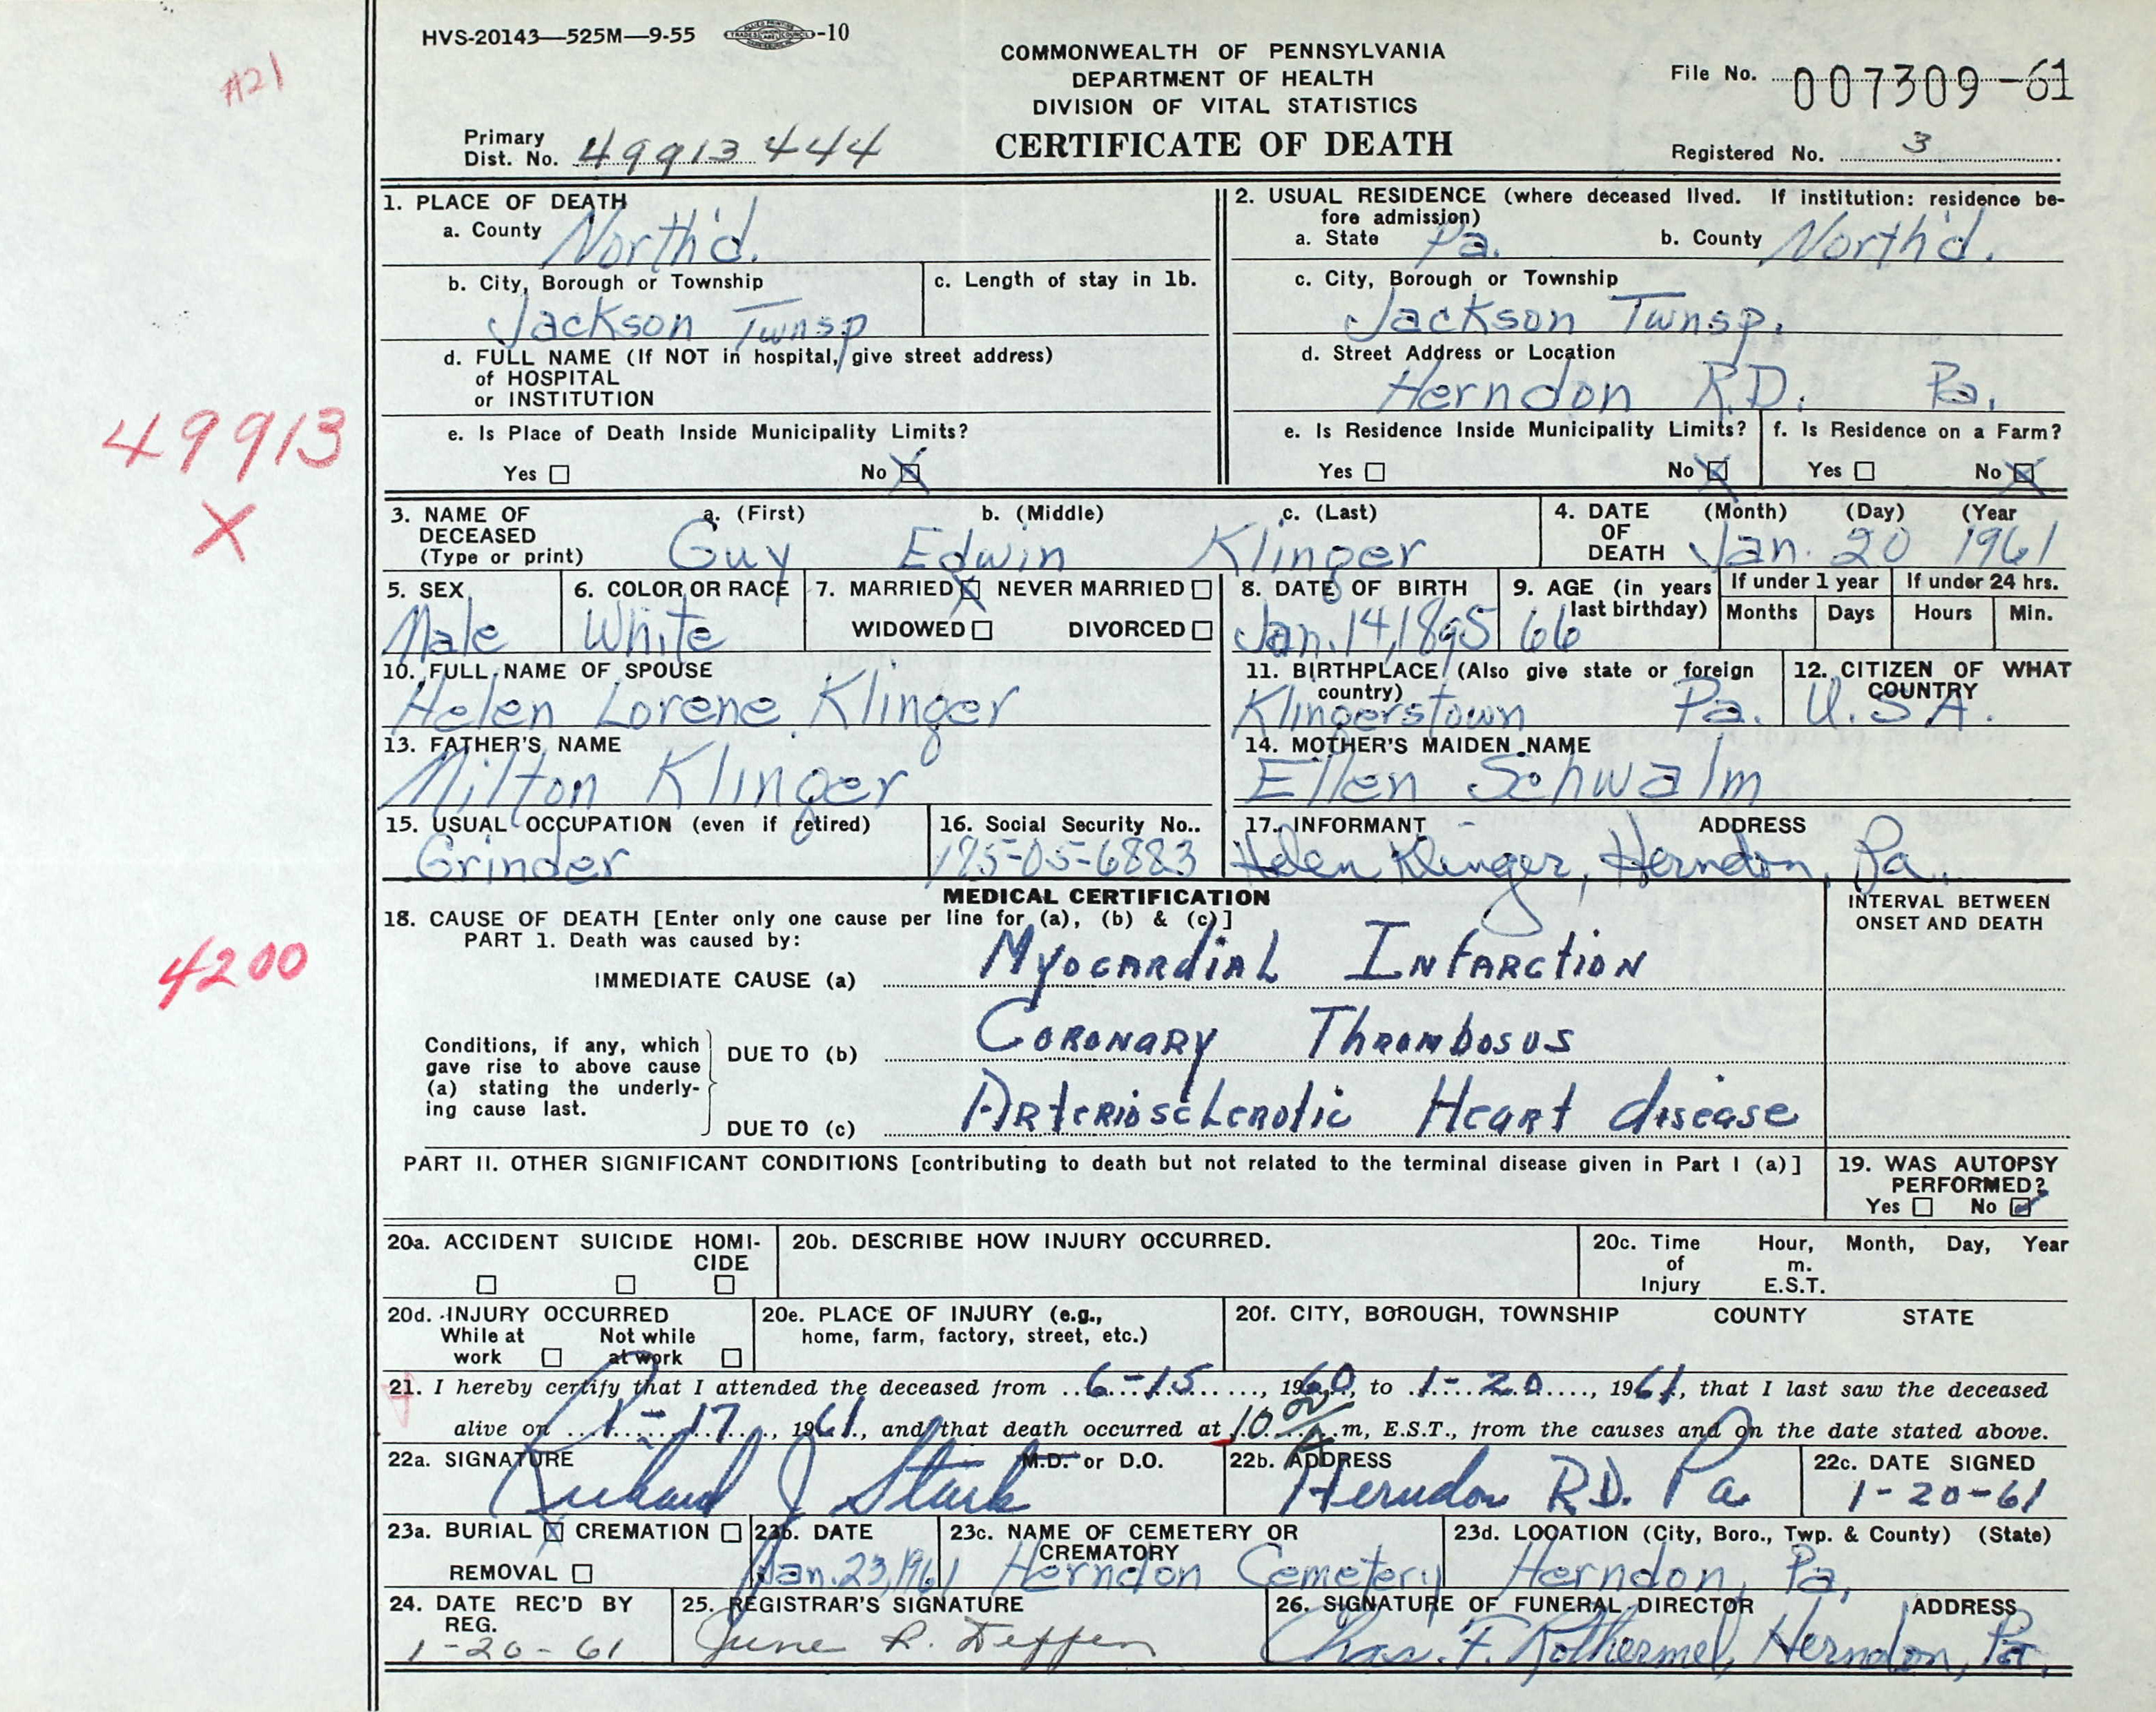 HVS-20143—525M—9-55 -10
#21
COMMONWEALTH OF PENNSYLVANIA
DEPARTMENT OF HEALTH
DIVISION OF VITAL STATISTICS
CERTIFICATE OF DEATH
File No. 007309-61
Primary
Dist. No. 49913 444
Registered No. 3
1. PLACE OF DEATH
a. County North'd.
b. City, Borough or Township
Jackson Twnsp
c. Length of stay in 1b.
d. FULL NAME (If NOT in hospital, give street address)
of HOSPITAL
or INSTITUTION
e. Is Place of Death Inside Municipality Limits?
Yes ☐ No ☒
2. USUAL RESIDENCE (where deceased lived. If institution: residence be-
fore admission)
a. State Pa. b. County North'd.
c. City, Borough or Township
Jackson Twnsp.
d. Street Address or Location
Herndon R.D. Pa.
e. Is Residence Inside Municipality Limits?
Yes ☐ No ☒
f. Is Residence on a Farm?
Yes ☐ No ☒
49913
X
3. NAME OF
DECEASED
(Type or print)
a. (First) b. (Middle) c. (Last)
Guy Edwin Klinger
4. DATE
OF
DEATH
(Month) (Day) (Year
Jan. 20 1961
5. SEX
Male
6. COLOR OR RACE
White
7. MARRIED ☒ NEVER MARRIED ☐
WIDOWED ☐ DIVORCED ☐
8. DATE OF BIRTH
Jan. 14, 1895
9. AGE (in years
last birthday)
66
If under 1 year
Months Days
If under 24 hrs.
Hours Min.
10. FULL NAME OF SPOUSE
Helen Lorene Klinger
11. BIRTHPLACE (Also give state or foreign
country)
Klingerstown Pa.
12. CITIZEN OF WHAT
COUNTRY
U.S.A.
13. FATHER'S NAME
Milton Klinger
14. MOTHER'S MAIDEN NAME
Ellen Schwalm
15. USUAL OCCUPATION (even if retired)
Grinder
16. Social Security No..
195-05-6883
17. INFORMANT ADDRESS
Helen Klinger, Herndon, Pa.
MEDICAL CERTIFICATION
INTERVAL BETWEEN
ONSET AND DEATH
18. CAUSE OF DEATH [Enter only one cause per line for (a), (b) & (c)]
PART 1. Death was caused by:
IMMEDIATE CAUSE (a) Myocardial Infarction
4200
Conditions, if any, which
gave rise to above cause
(a) stating the underly-
ing cause last.
DUE TO (b) Coronary Thrombosus
DUE TO (c) Arteriosclerotic Heart disease
PART II. OTHER SIGNIFICANT CONDITIONS [contributing to death but not related to the terminal disease given in Part I (a)]
19. WAS AUTOPSY
PERFORMED?
Yes ☐ No ☑
20a. ACCIDENT SUICIDE HOMI-
CIDE
☐ ☐ ☐
20b. DESCRIBE HOW INJURY OCCURRED.
20c. Time
of
Injury
Hour, Month, Day, Year
m.
E.S.T.
20d. INJURY OCCURRED
While at Not while
work ☐ at work ☐
20e. PLACE OF INJURY (e.g.,
home, farm, factory, street, etc.)
20f. CITY, BOROUGH, TOWNSHIP COUNTY STATE
21. I hereby certify that I attended the deceased from 6-15, 1960, to 1-20, 1961, that I last saw the deceased
alive on 1-17, 1961, and that death occurred at 10 00 A m, E.S.T., from the causes and on the date stated above.
22a. SIGNATURE M.D. or D.O.
Richard J Stark
22b. ADDRESS
Herndon R.D. Pa
22c. DATE SIGNED
1-20-61
23a. BURIAL ☒ CREMATION ☐
REMOVAL ☐
23b. DATE
Jan. 23, 1961
23c. NAME OF CEMETERY OR
CREMATORY
Herndon Cemetery
23d. LOCATION (City, Boro., Twp. & County) (State)
Herndon, Pa.
24. DATE REC'D BY
REG.
1-20-61
25. REGISTRAR'S SIGNATURE
June
26. SIGNATURE OF FUNERAL DIRECTOR ADDRESS
Chas. F. Rothermel, Herndon, Pa.